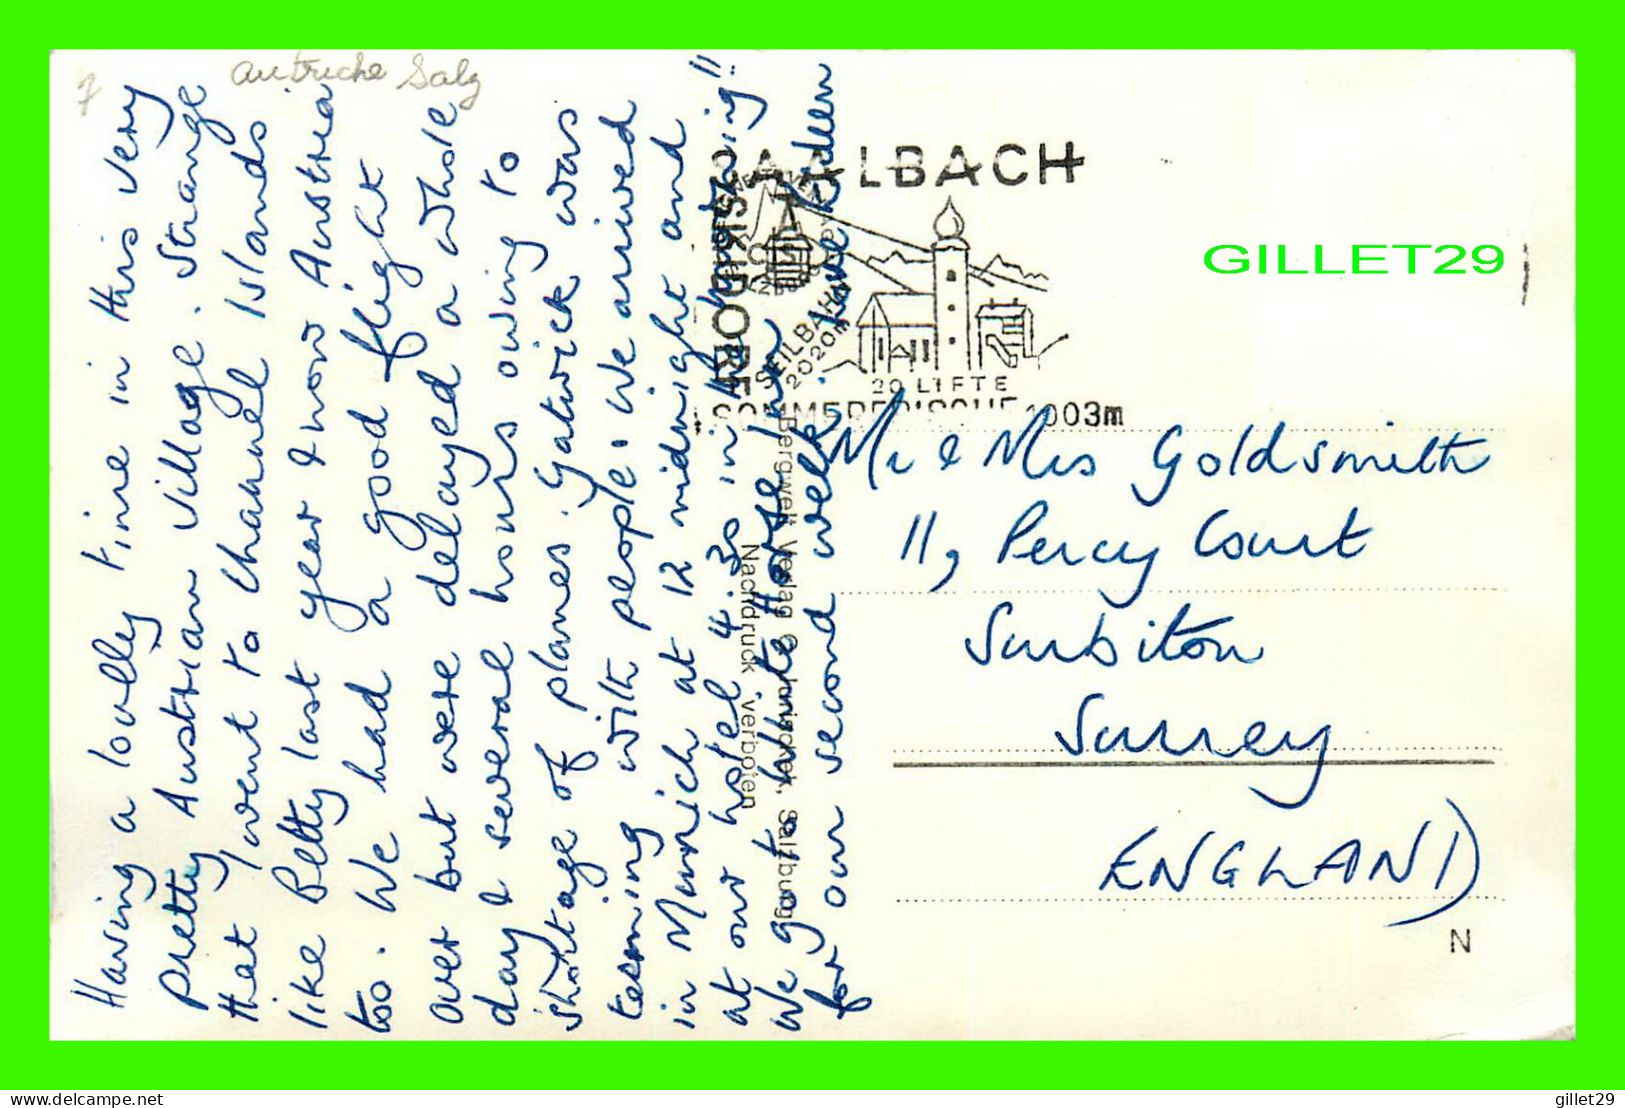 7
autriche Salz
Having a lovely time in this very
pretty Austrian village. Strange
that I went to Channel Islands
like Betty last year & now Austria
too. We had a good flight
over but were delayed a whole
day & several hours owing to
shortage of planes. Gatwick was
teeming with people. We arrived
in Munich at 12 midnight and
at our hotel 4.30 in the morning!!
We go to White Horse Inn
for our second week. Love Eileen
SAALBACH
SKIDORF
SEILBAHN
2020m
20 LIFTE
SOMMERFRISCHE 1003m
Bergwelt Verlag C. Jurischek, Salzburg
Nachdruck verboten
GILLET29
Mr & Mrs Goldsmith
11, Percy Court
Surbiton
Surrey
ENGLAND
N
www.delcampe.net
gillet29